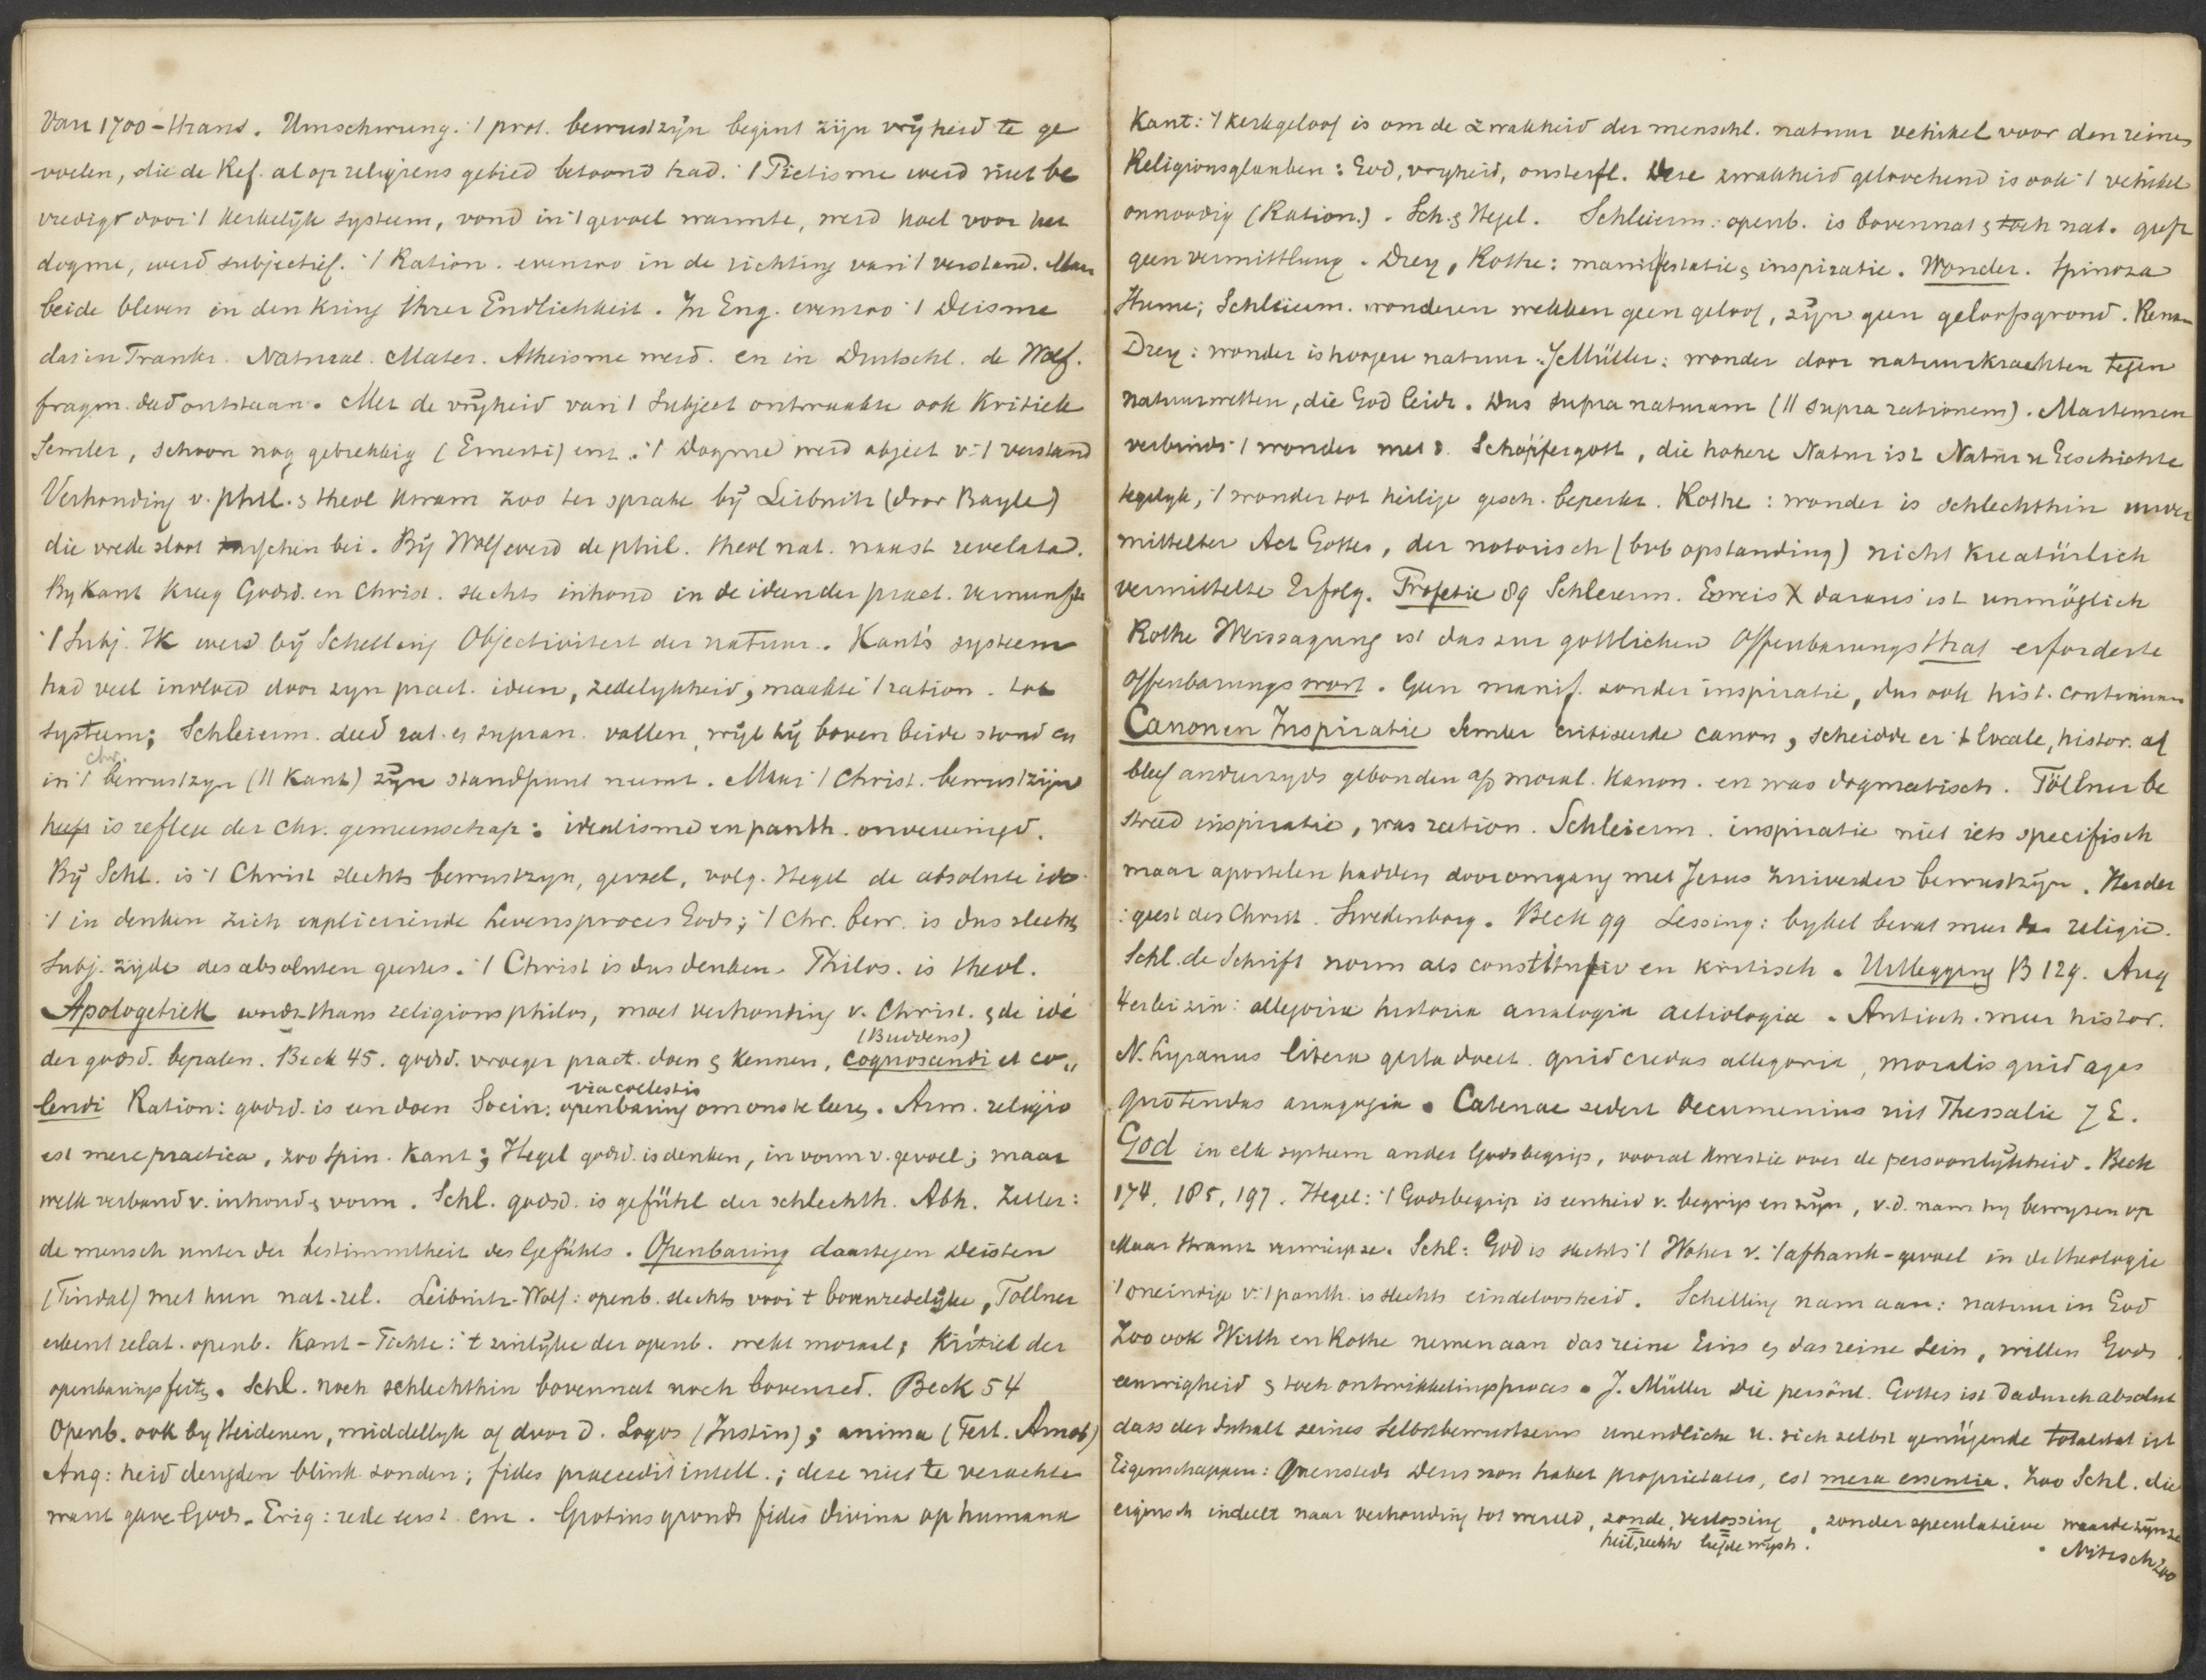 Van 1700 - thans. Umschwung. 't prot. bewustzijn begint zijn vrijheid te ge
voelen, die de Ref. al op religieus gebied betoond had. 't Pietisme werd niet be
vredigt door 't kerkelijk systeem, vond in 't gevoel warmte, werd koel voor het
dogme, werd subjectief. 't Ration. evenzoo in de richting van 't verstand. Maar
beide bleven in den kring ihrer Endlichkeit. In Eng. evenzoo 't Deisme
dat in Frankr. Natural. Mater. Atheisme werd. en in Duitschl. de Wolf.
fragm. deed ontstaan. Met de vrijheid van 't subject ontwaakte ook Kritiek
Semler, schoon nog gebrekkig (Ernesti) enz. 't Dogme werd object v. 't verstand
Verhouding v. phil. & theol kwam zoo ter sprake bij Leibnitz (door Bayle)
die vrede sloot tusschen bei. Bij Wolf werd de phil. theol nat. naast revelata.
By Kant kreeg Godsd. en Christ. slechts inhoud in de ideen der pract. vernunft
't Subj. Ik werd bij Schelling Objectiviteit der natuur. Kant's systeem
had veel invloed door zyn pract. ideen, zedelykheid, maakte 't ration. tot
systeem; Schleierm. deed rat. en supran. vallen, wijl hij boven beide stond en
chr.
in 't bewustzyn (// Kant) zijn standpunt neemt. Maar 't Christ. bewustzijn
heeft is reflex der chr. gemeenschap: idealisme en panth. onvereenigd.
Bij Schl. is 't Christ slechts bewustzyn, gevoel, volg. Hegel de absolute idee
't in denken zich expliceerende Levensproces Gods; 't chr. bew. is dus slechts
subj. zijde des absoluten geestes. 't Christ is dus denken. Philos. is theol.
Apologetiek wordt thans religionsphilos, moet verhouding v. Christ. & de idé
(Buddeus)
der godsd. bepalen. Beck 45. godsd. vroeger pract. doen & kennen, cognoscendi et co-
via coelestis
lendi Ration: godsd. is een doen Socin: openbaring om ons te leeren. Arm. religio
est mere practica, zoo Spin. Kant; Hegel godsd. is denken, in vorm v. gevoel; maar
welk verband v. inhoud & vorm. Schl. godsd. is gefühl der schlechth. Abh. Zeller:
de mensch unter der bestimmtheit des Gefühls. Openbaring daartegen Deisten
(Tindal) met hun nat. rel. Leibnitz-Wolf: openb. slechts voor 't bovenredelijke, Töllner
erkent relat. openb. Kant-Fichte: 't zinlijke der openb. wekt moraal; Kritiek der
openbaringsfeiten. Schl. noch schlechthin bovennat noch bovenred. Beck 54
Openb. ook by Heidenen, middellyk of door d. Logos (Justin); anima (Tert. Arnob)
Aug: heid deugden blink. zonden; fides praecedit intell.; deze niet te verachten
want gave Gods. Erig: rede eerst enz. Grotius grondt fides divina op humana
Kant: 't kerkgeloof is om de zwakheid der menschl. natuur vehikel voor den reinen
Religionsglauben: God, vryheid, onsterfl. Deze zwakheid geloochend is ook 't vehikel
onnoodig (Ration.). Sch. & Hegel. Schleierm: openb. is bovennat & toch nat. geeft
geen vermittlung. Drey, Rothe: manifestatie & inspiratie. Wonder. Spinoza
Hume; Schleierm. wonderen wekken geen geloof, zijn geen geloofsgrond. Renan
Drey: wonder is hoogere natuur. J Müller: wonder door natuurkrachten tegen
natuurwetten, die God leidt. Dus supra naturam (// supra rationem). Martensen
verbindt 't wonder met d. Schöpfergott, die hohere Natur ist Natur u Geschichte
tegelyk, 't wonder tot heilige gesch. beperkt. Rothe: wonder is schlechthin unver
mittelter Act Gottes, der notorisch (bvb opstanding) nicht kreatürlich
vermittelte Erfolg. Profetie 89 Schleierm. Beweis daraus ist unmöglich
Rothe Weissagung ist das zur gottlichen Offenbarungsthat erforderte
Offenbarungswort. Geen manif. zonder inspiratie, dus ook hist. continuum
Canon en Inspiratie Semler critiseerde canon, scheidde er 't locale, histor. af
bleef anderzyds gebonden op moral. kanon. en was dogmatisch. Töllner be
streed inspiratie, was ration. Schleierm. inspiratie niet iets specifisch
maar apostelen hadden door omgang met Jezus zuiverder bewustzijn. Herder
: geest des Christ. Swedenborg. Beck 99 Lessing: bybel bevat meer dan religie.
Schl. de Schrift norm als constitutiv en kritisch. Uitlegging B 129. Aug
4erlei zin: allegoria historia analogia aetiologia. Antioch. meer histor.
N. Lyranus litera gesta docet. quid credas allegoria, moralis quid agas
quo tendas anagogia. Catenae sedert Oecumenius uit Thessalie 7 E.
God in elk systeem ander Godsbegrip, vooral kwestie over de persoonlijkheid. Beck
174. 185, 197. Hegel: 't Godsbegrip is eenheid v. begrip en zijn, v.d. nam hy bewyzen op
Maar Strauss verwierp ze. Schl: God is slechts 't Woher v. 't afhank-gevoel in de theologie
't oneindige v. 't panth. is slechts eindeloosheid. Schelling nam aan: natuur in God
Zoo ook Wirth en Rothe nemen aan das reine Eins en das reine Sein, willen Gods
eeuwigheid & toch ontwikkelingsproces. J. Müller die persönl. Gottes ist dadurch absolut
dass der Inhalt seines Selbstbewustseins unendliche u. sich selbst genügende totalitat ist
Eigenschappen: Quenstedt Deus non habet proprietates, est mera essentia. Zoo Schl. die
eigensch indeelt naar verhouding tot wereld, zonde, verlossing. zonder speculatieve waarde zijn ze
heil, rechtv liefde wijsh.
. Nitzsch zoo